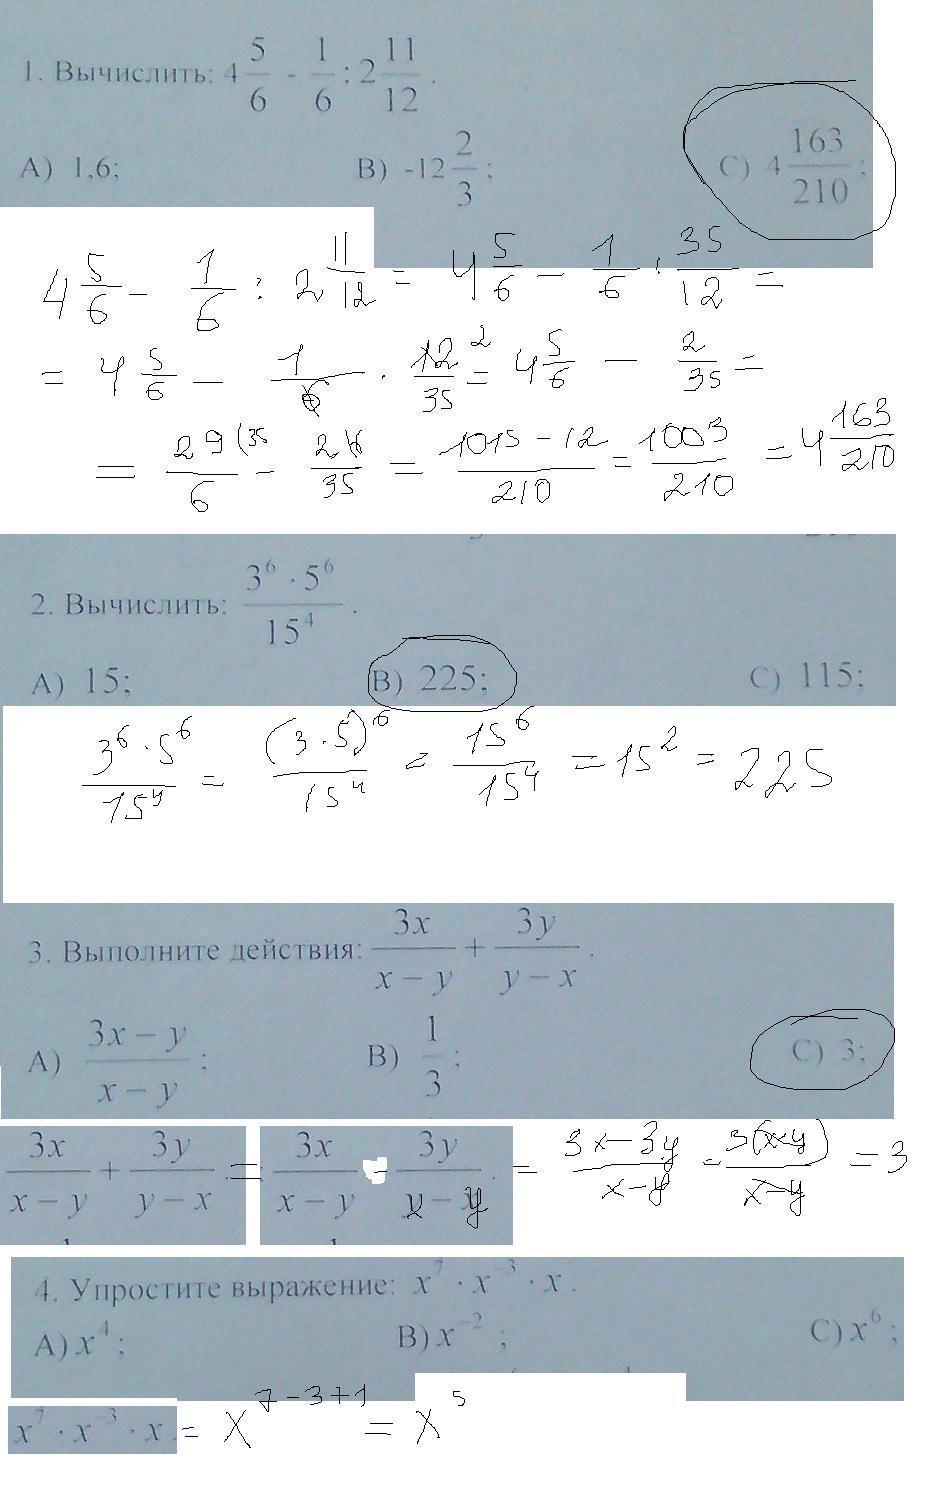 1. Вычислить: 4 5/6 - 1/6 : 2 11/12 .
А) 1,6; В) -12 2/3 ; С) 4 163/210 ;
4 5/6 - 1/6 : 2 11/12 = 4 5/6 - 1/6 : 35/12 =
= 4 5/6 - 1/6 · 12/35 ² = 4 5/6 - 2/35 =
= 29(35/6 - 2(6/35 = 1015-12/210 = 1003/210 = 4 163/210
2. Вычислить: 3⁶ · 5⁶ / 15⁴ .
А) 15; В) 225; С) 115;
3⁶ · 5⁶ / 15⁴ = (3 · 5)⁶ / 15⁴ = 15⁶ / 15⁴ = 15² = 225
3. Выполните действия: 3x / x − y + 3y / y − x .
А) 3x − y / x − y ; В) 1/3 ; С) 3;
3x / x − y + 3y / y − x = 3x / x − y - 3y / x − y = 3x-3y / x-y = 3(x-y) / x-y = 3
4. Упростите выражение: x⁷ · x⁻³ · x .
А) x⁴ ; В) x⁻² ; С) x⁶ ;
x⁷ · x⁻³ · x = x⁷⁻³⁺¹ = x⁵